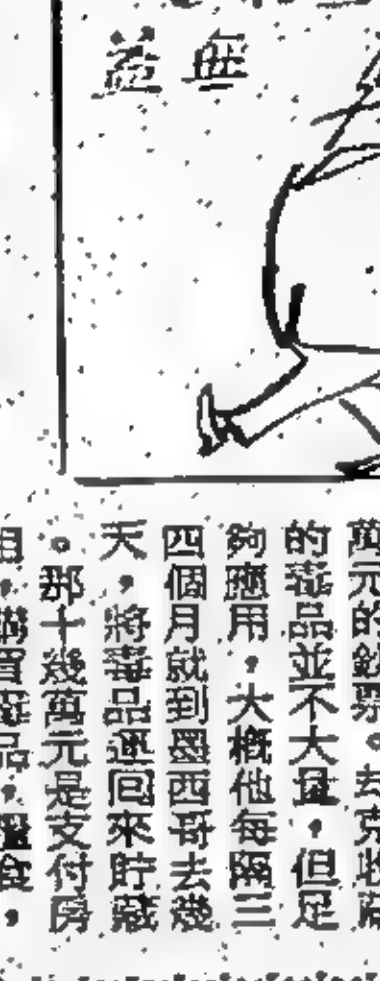 無益
萬元的鈔票。去克收藏
的毒品並不大量,但足
夠應用,大概他每隔三
四個月就到墨西哥去幾
天,將毒品運回來貯藏
。那十幾萬元是支付房
租,購買毒品,糧食,